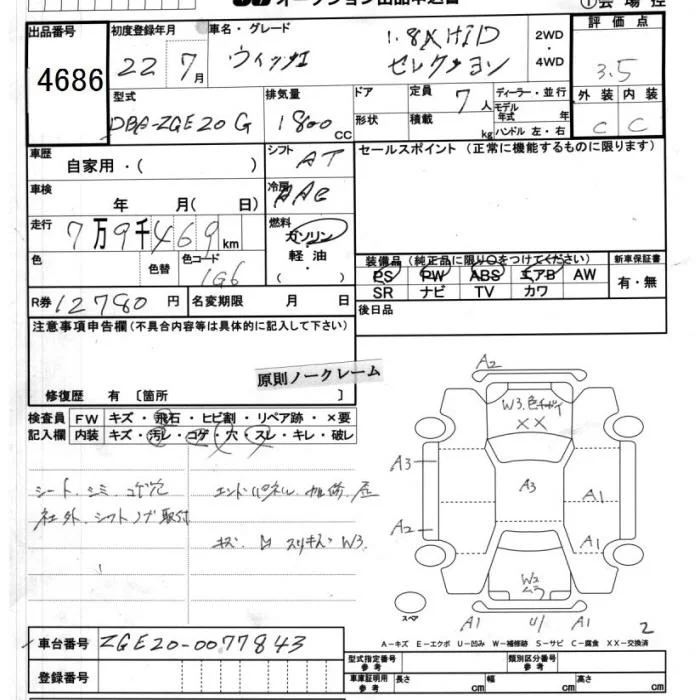 オークション出品申込書
①会場控
出品番号 4686
初度登録年月 22 7月
車名・グレード ウィッシュ 1.8X HID セレクション
2WD・4WD
評価点 3.5
外装 内装
C C
型式 DBA-ZGE20G
排気量 1800cc
ドア
形状
定員 7人
積載 kg
ディーラー・並行
モデル年式 年
ハンドル 左・右
車歴 自家用・( )
シフト AT
セールスポイント(正常に機能するものに限ります)
車検 年 月( 日)
冷房 AAC
走行 7万9千469km
燃料 ガソリン・軽油・( )
色
色替
色コード 1G6
装備品(純正品に限り○をつけてください)
PS PW ABS エアB AW
SR ナビ TV カワ
新車保証書
有・無
R券 12780円
名変期限 月 日
後日品
注意事項申告欄(不具合内容等は具体的に記入して下さい)
原則ノークレーム
修復歴 有〔箇所 〕
検査員記入欄
FW キズ・飛石・ヒビ割・リペア跡・×要
内装 キズ・汚レ・コゲ・穴・スレ・キレ・破レ
シート、シミ、コゲ穴
社外、シフトノブ取付
エンドパネル
W3.
A2
W3.色チガイ
XX
A3
A3
A1
A2
A1
W2
ムラ
スペア
A1 U1 A1
2
A-キズ E-エクボ U-凹み W-補修跡 S-サビ C-腐食 XX-交換済
車台番号 ZGE20-0077843
登録番号
型式指定番号 参考
類別区分番号 参考
車庫証明用 参考
長さ cm
幅 cm
高さ cm